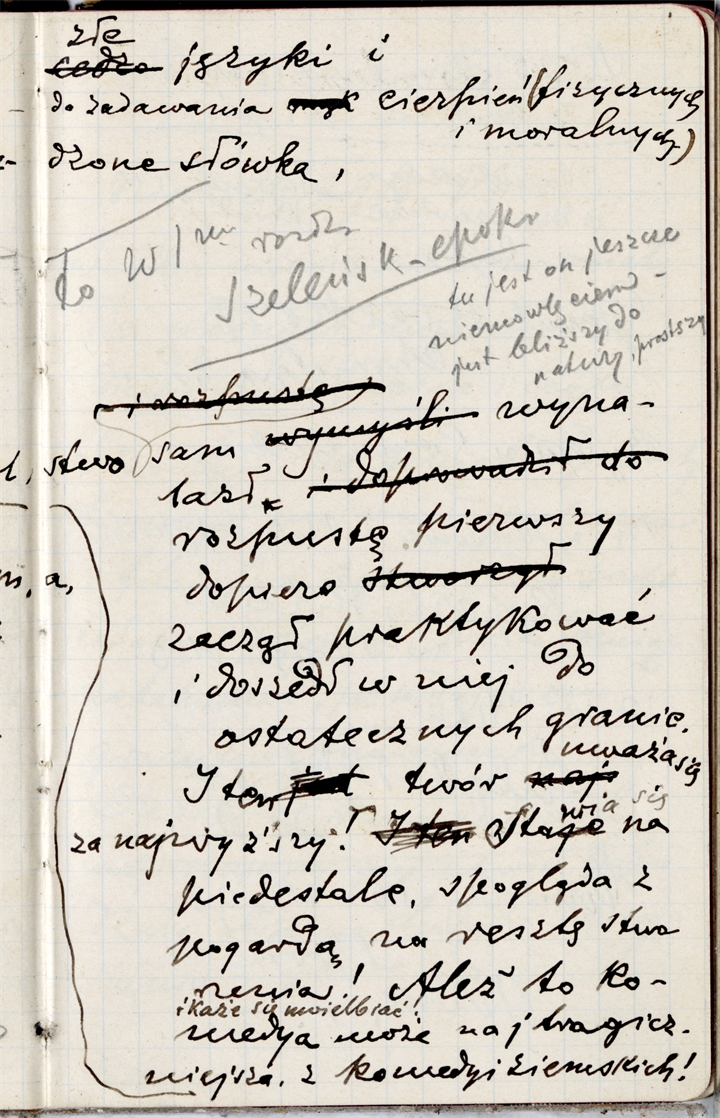 złe
cedzo języki i
do zadawania mąk cierpień (fizycznych
i moralnych)
dzone słówka,
do W I
tu jest on jeszcze
niemowlęciem –
jest bliższy do
natury, prostszy
i rozpustę
sam wymyśli wyna-
stwo
lazł i doprowadził do
rozpustę pierwszy
dopiero stworzył
zaczął praktykować
i doszedł w niej do
ostatecznych granic.
I ten jest twór naj uważa się
za najwyższy! I ten Staje wia się na
piedestale, spogląda z
pogardą na resztę stwo
rzenia! Ależ to ko-
i każe się uwielbiać!
medya może najtragicz-
niejsza z komedyi ziemskich!